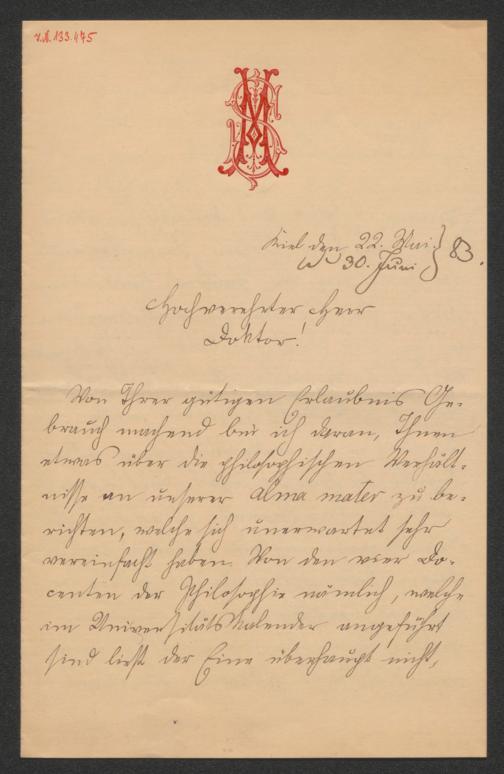 I.N. 133.475
MS
Kiel den 22. Mai
30. Juni } 83.
Hochverehrter Herr
Doktor!
Von Ihrer gütigen Erlaubnis Ge-
brauch machend bin ich daran, Ihnen
etwas über die philosophischen Verhält-
nisse an unserer alma mater zu be-
richten, welche sich unerwartet sehr
vereinfacht haben. Von den vier Do-
centen der Philosophie nämlich, welche
im Universitätskalender angeführt
sind liest der Eine überhaupt nicht,